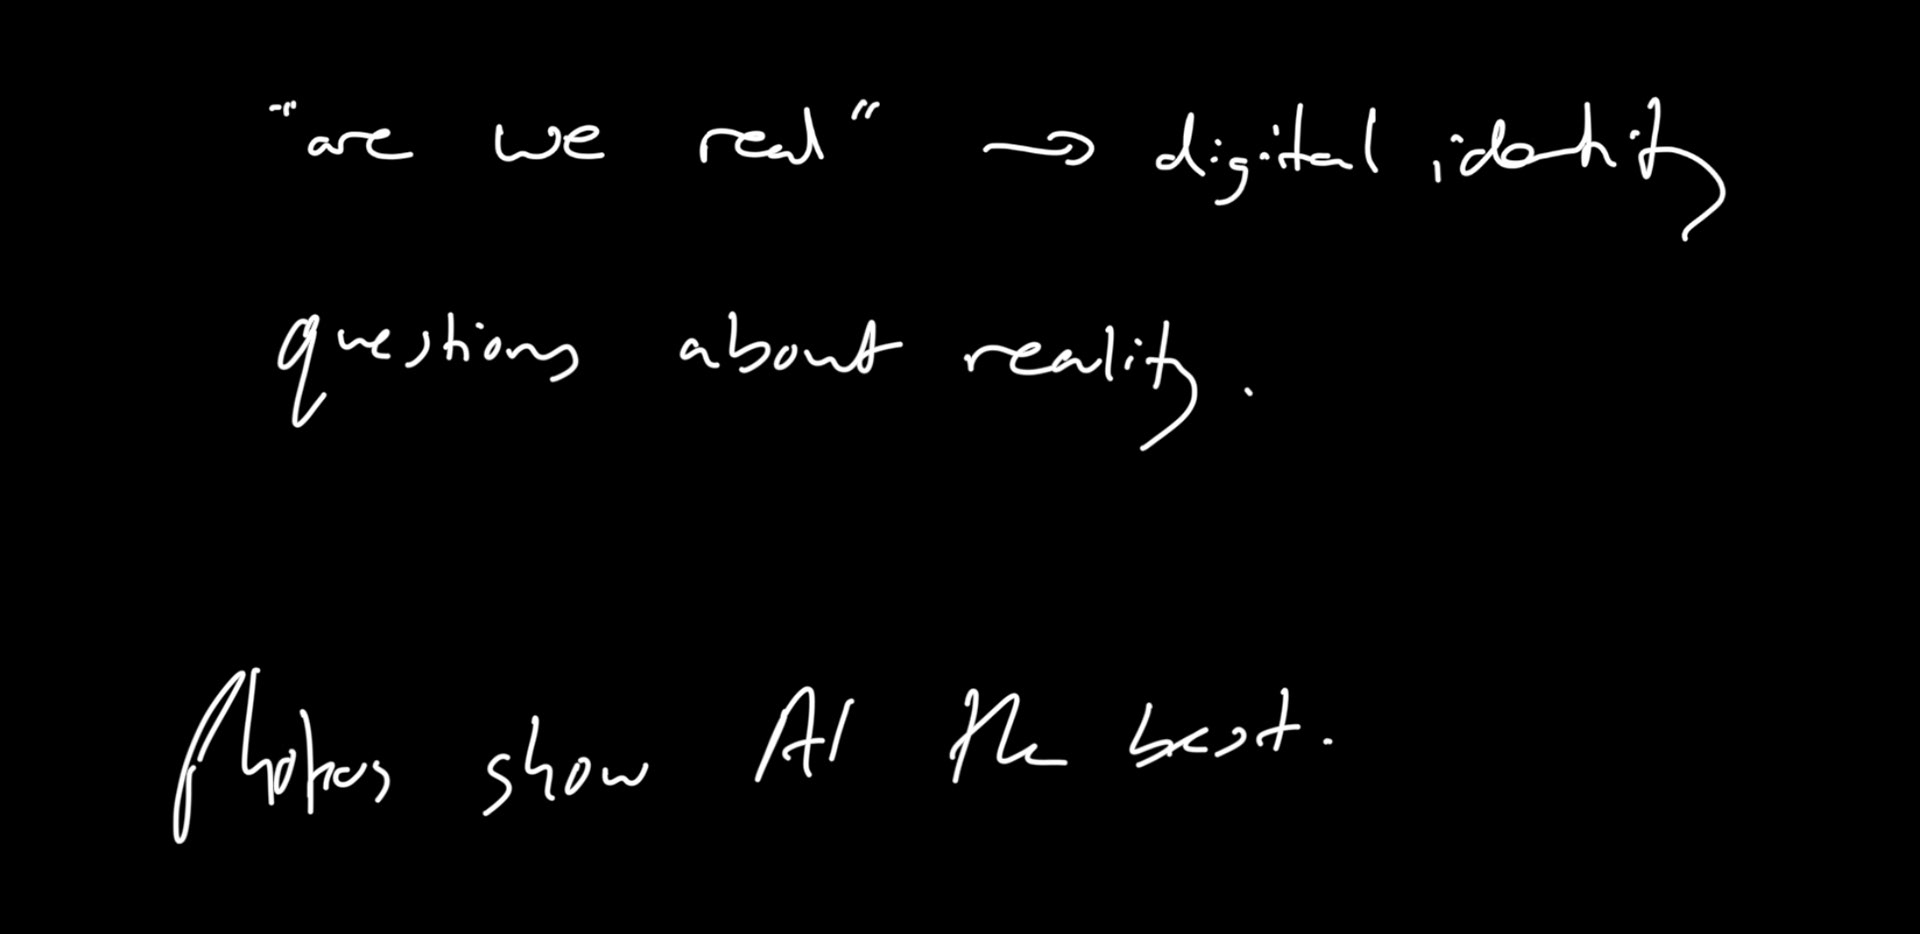 "are we real" → digital identity
questions about reality.
Photos show AI the best.